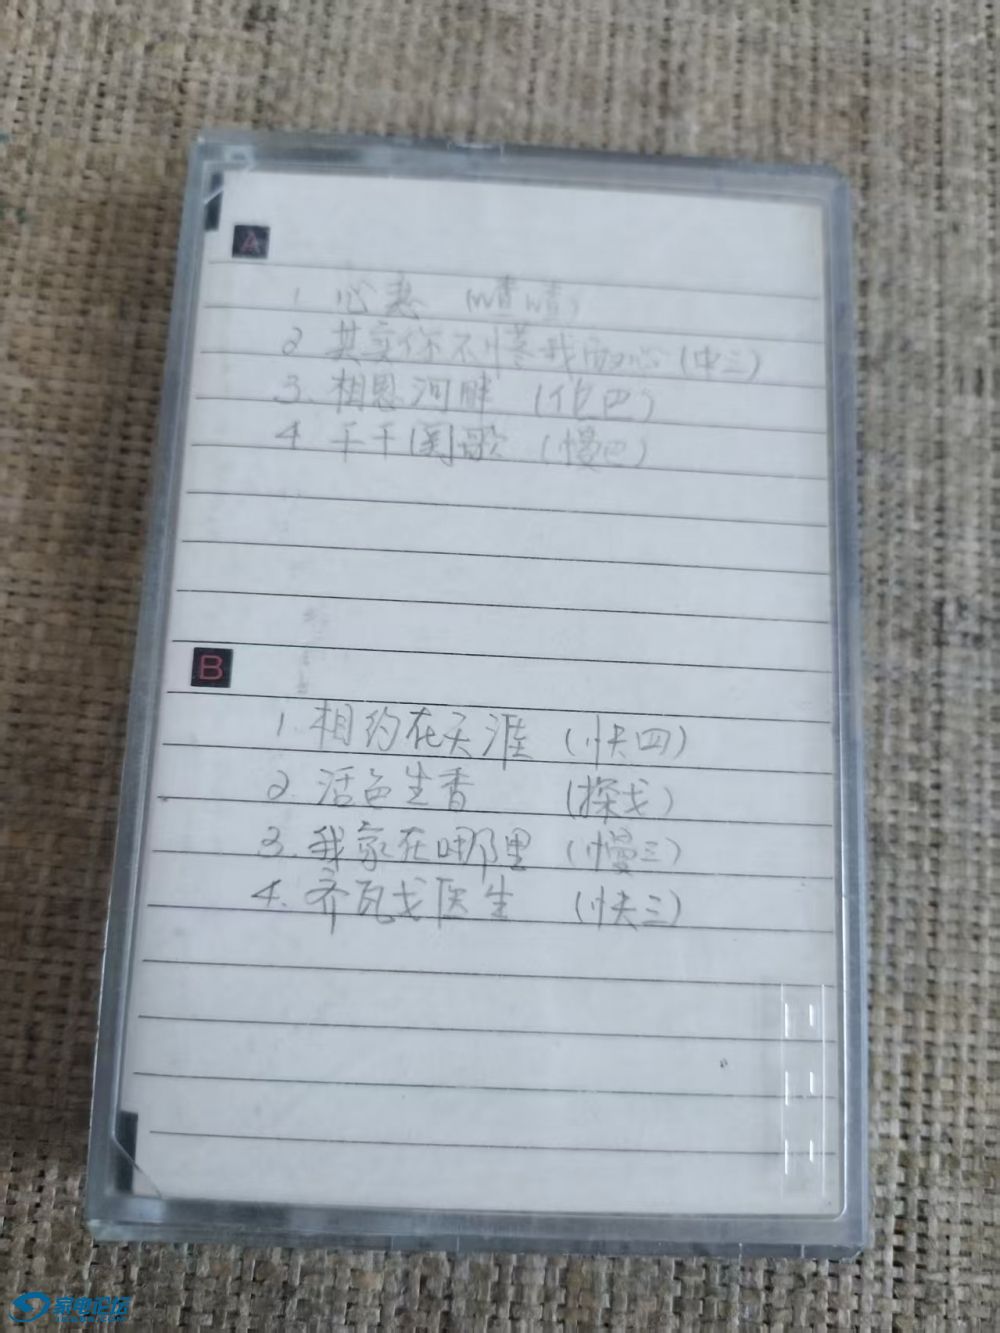 A
1. 心愁 (喳喳)
2 其实你不懂我的心 (中三)
3. 相思河畔 (伦巴)
4 千千阕歌 (慢巴)
B
1. 相约在天涯 (快四)
2. 活色生香 (探戈)
3. 我家在哪里 (慢三)
4. 齐瓦戈医生 (快三)
家电论坛